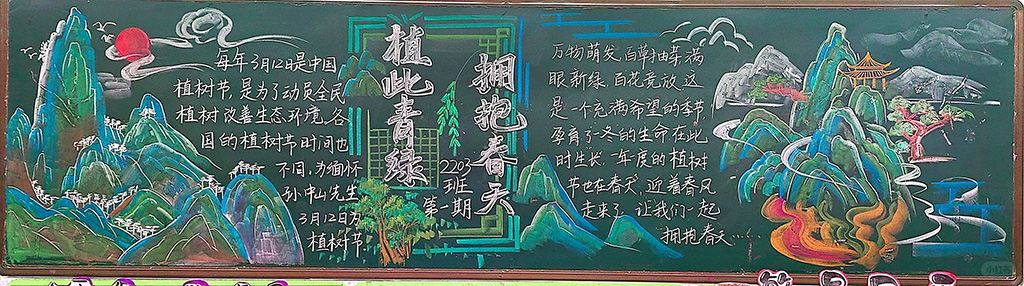 每年3月12日是中国
植树节,是为了动员全民
植树改善生态环境、各
国的植树节时间也
不同,为缅怀
孙中山先生
3月12日为
植树节
植此青绿
拥抱春天
2203
班
第一期
万物萌发,百草抽芽,满
眼新绿,百花竞放,这
是一个充满希望的季节,
孕育了一冬的生命在此
时生长,一年度的植树
节也在春天,迎着春风
走来了,让我们一起
拥抱春天…
小红书